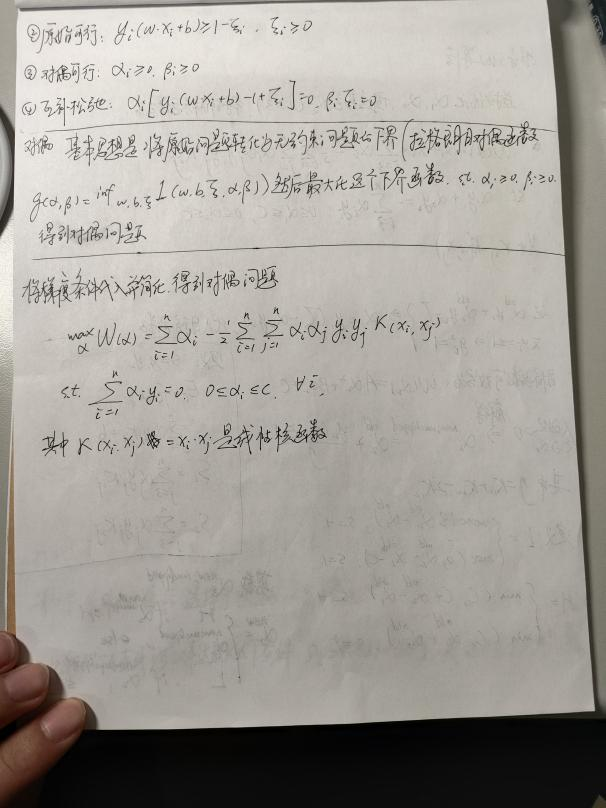 ②原始可行: yᵢ(w·xᵢ+b)≥1-ξᵢ, ξᵢ≥0
③对偶可行: αᵢ≥0, βᵢ≥0
④互补松弛: αᵢ[yᵢ(w·xᵢ+b)-1+ξᵢ]=0, βᵢξᵢ=0
对偶 基本思想是:将原始问题转化为无约束问题的下界(拉格朗日对偶函数
g(α,β)=inf w,b,ξ L(w,b,ξ,α,β))然后最大化这个下界函数, s.t. αᵢ≥0, βᵢ≥0.
得到对偶问题
将梯度条件代入并简化,得到对偶问题
max α W(α)=∑ⁿᵢ₌₁ αᵢ - 1/2 ∑ⁿᵢ₌₁ ∑ⁿⱼ₌₁ αᵢαⱼ yᵢyⱼ K(xᵢ,xⱼ)
s.t. ∑ⁿᵢ₌₁ αᵢyᵢ=0, 0≤αᵢ≤C, ∀i,
其中 K(xᵢ,xⱼ)=xᵢ·xⱼ 是线性核函数